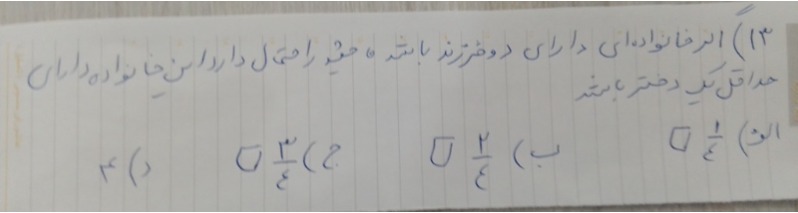 ۱۳) اگر خانواده‌ای دارای دو فرزند باشد، چقدر احتمال دارد این خانواده دارای
حداقل یک دختر باشد
الف) ۱/۴ □ ب) ۲/۴ □ ج) ۳/۴ □ د) ۴